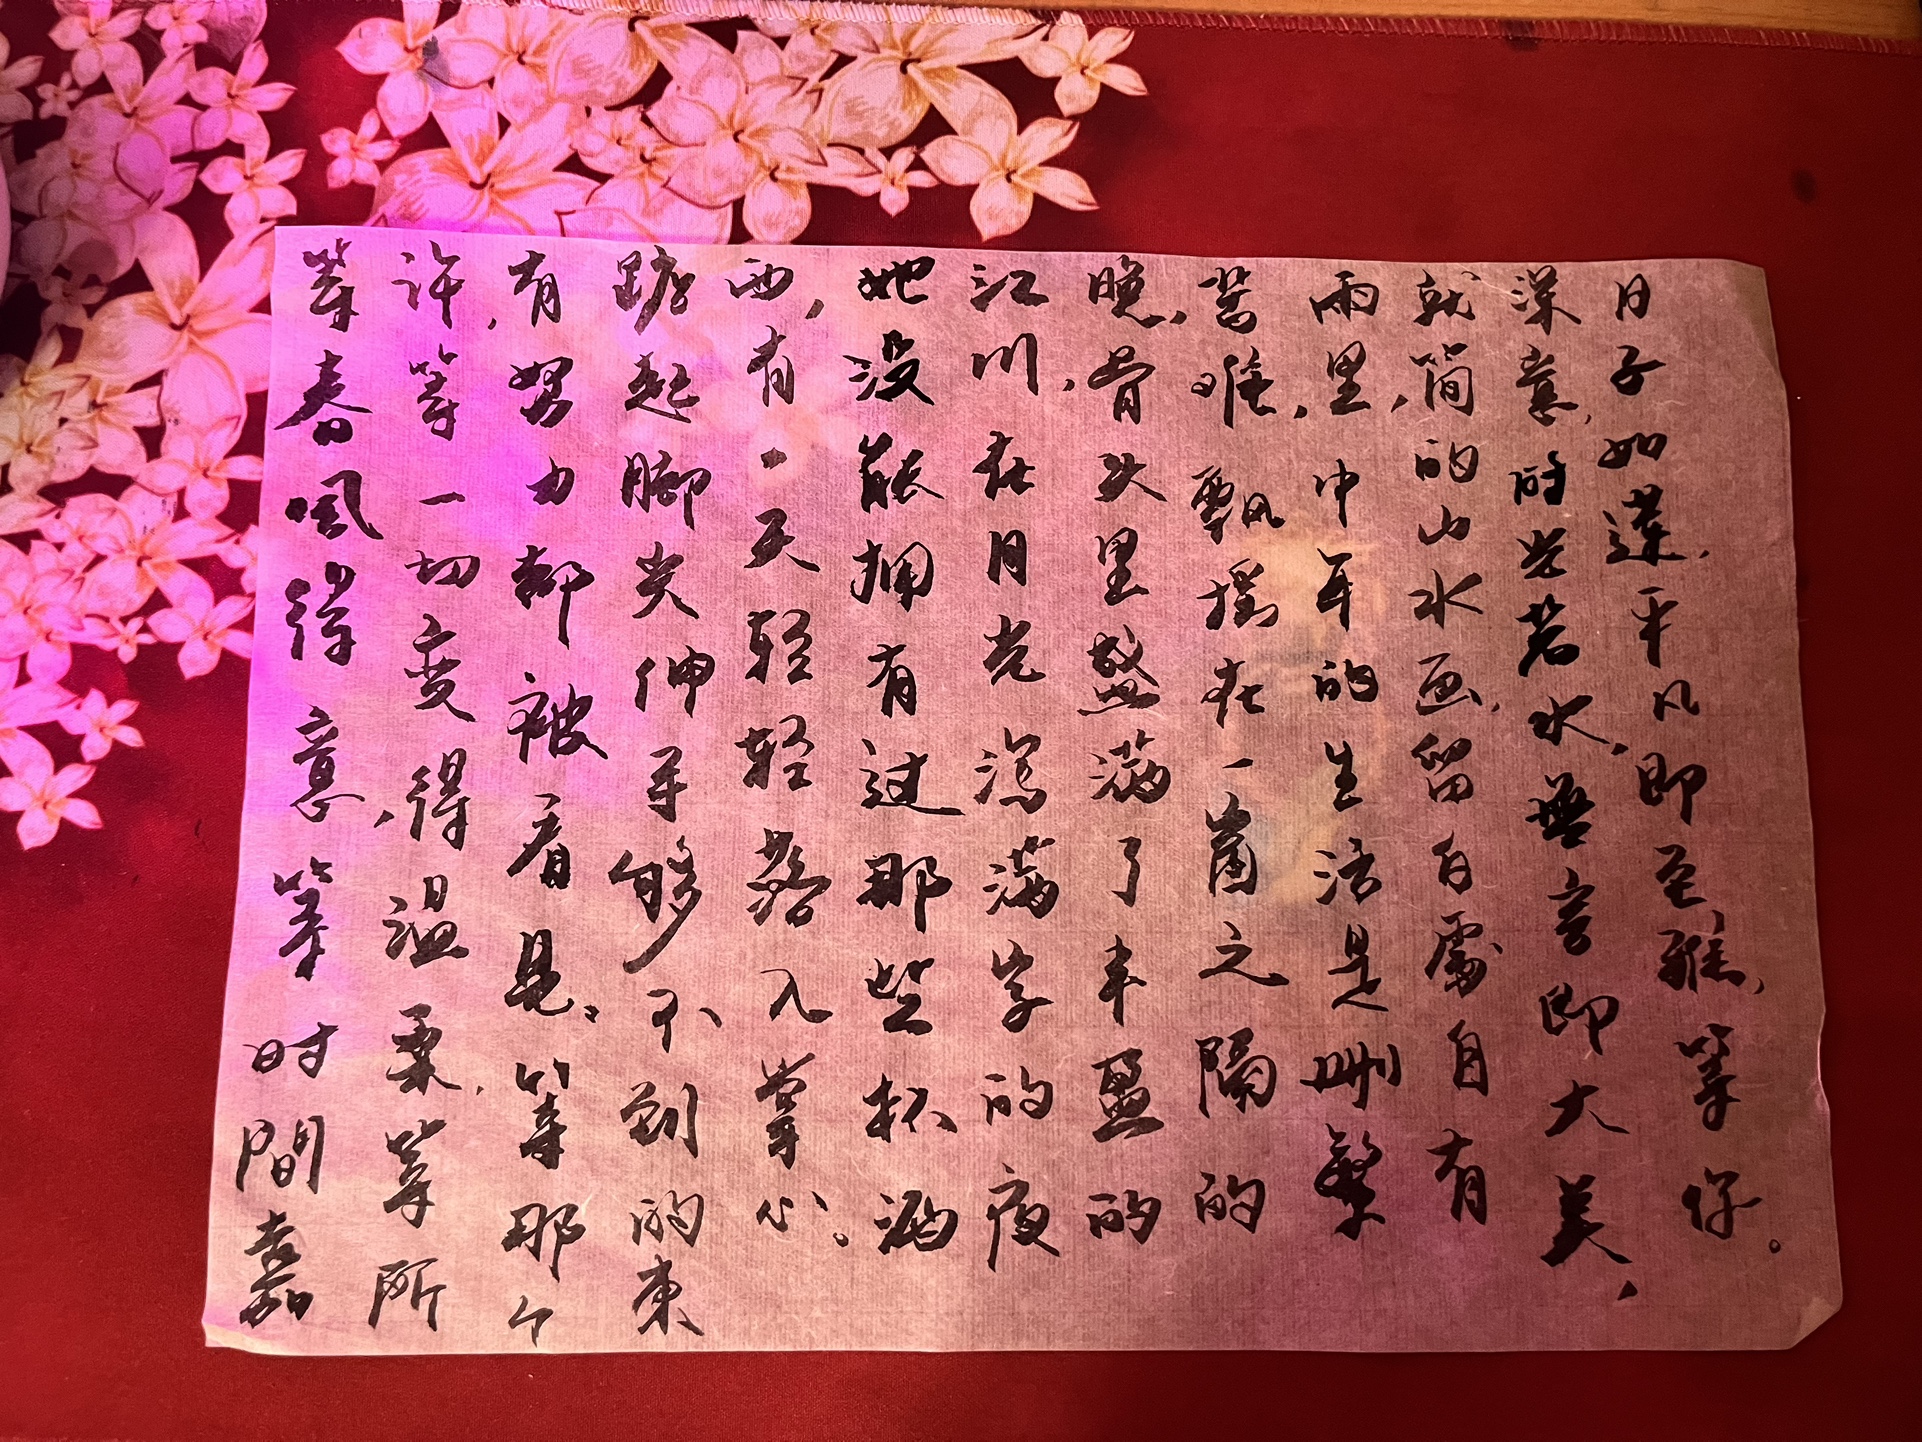 等春风得意，等时間嘉
许，等一切变得温柔，等所
有努力都被看見。等那个
踮起脚尖伸手够不到的東
西，有一天轻轻落入掌心。
她没能拥有过那些杯酒
江川，在月光泻满字的夜
晚，骨头里盛满了丰盈的
飘摇在一窗之隔的
雨里，中年的生活是删繁
就简的山水画，留白處自有
深意，时光若水，無言即大美，
日子如莲，平凡即至雅，等你。